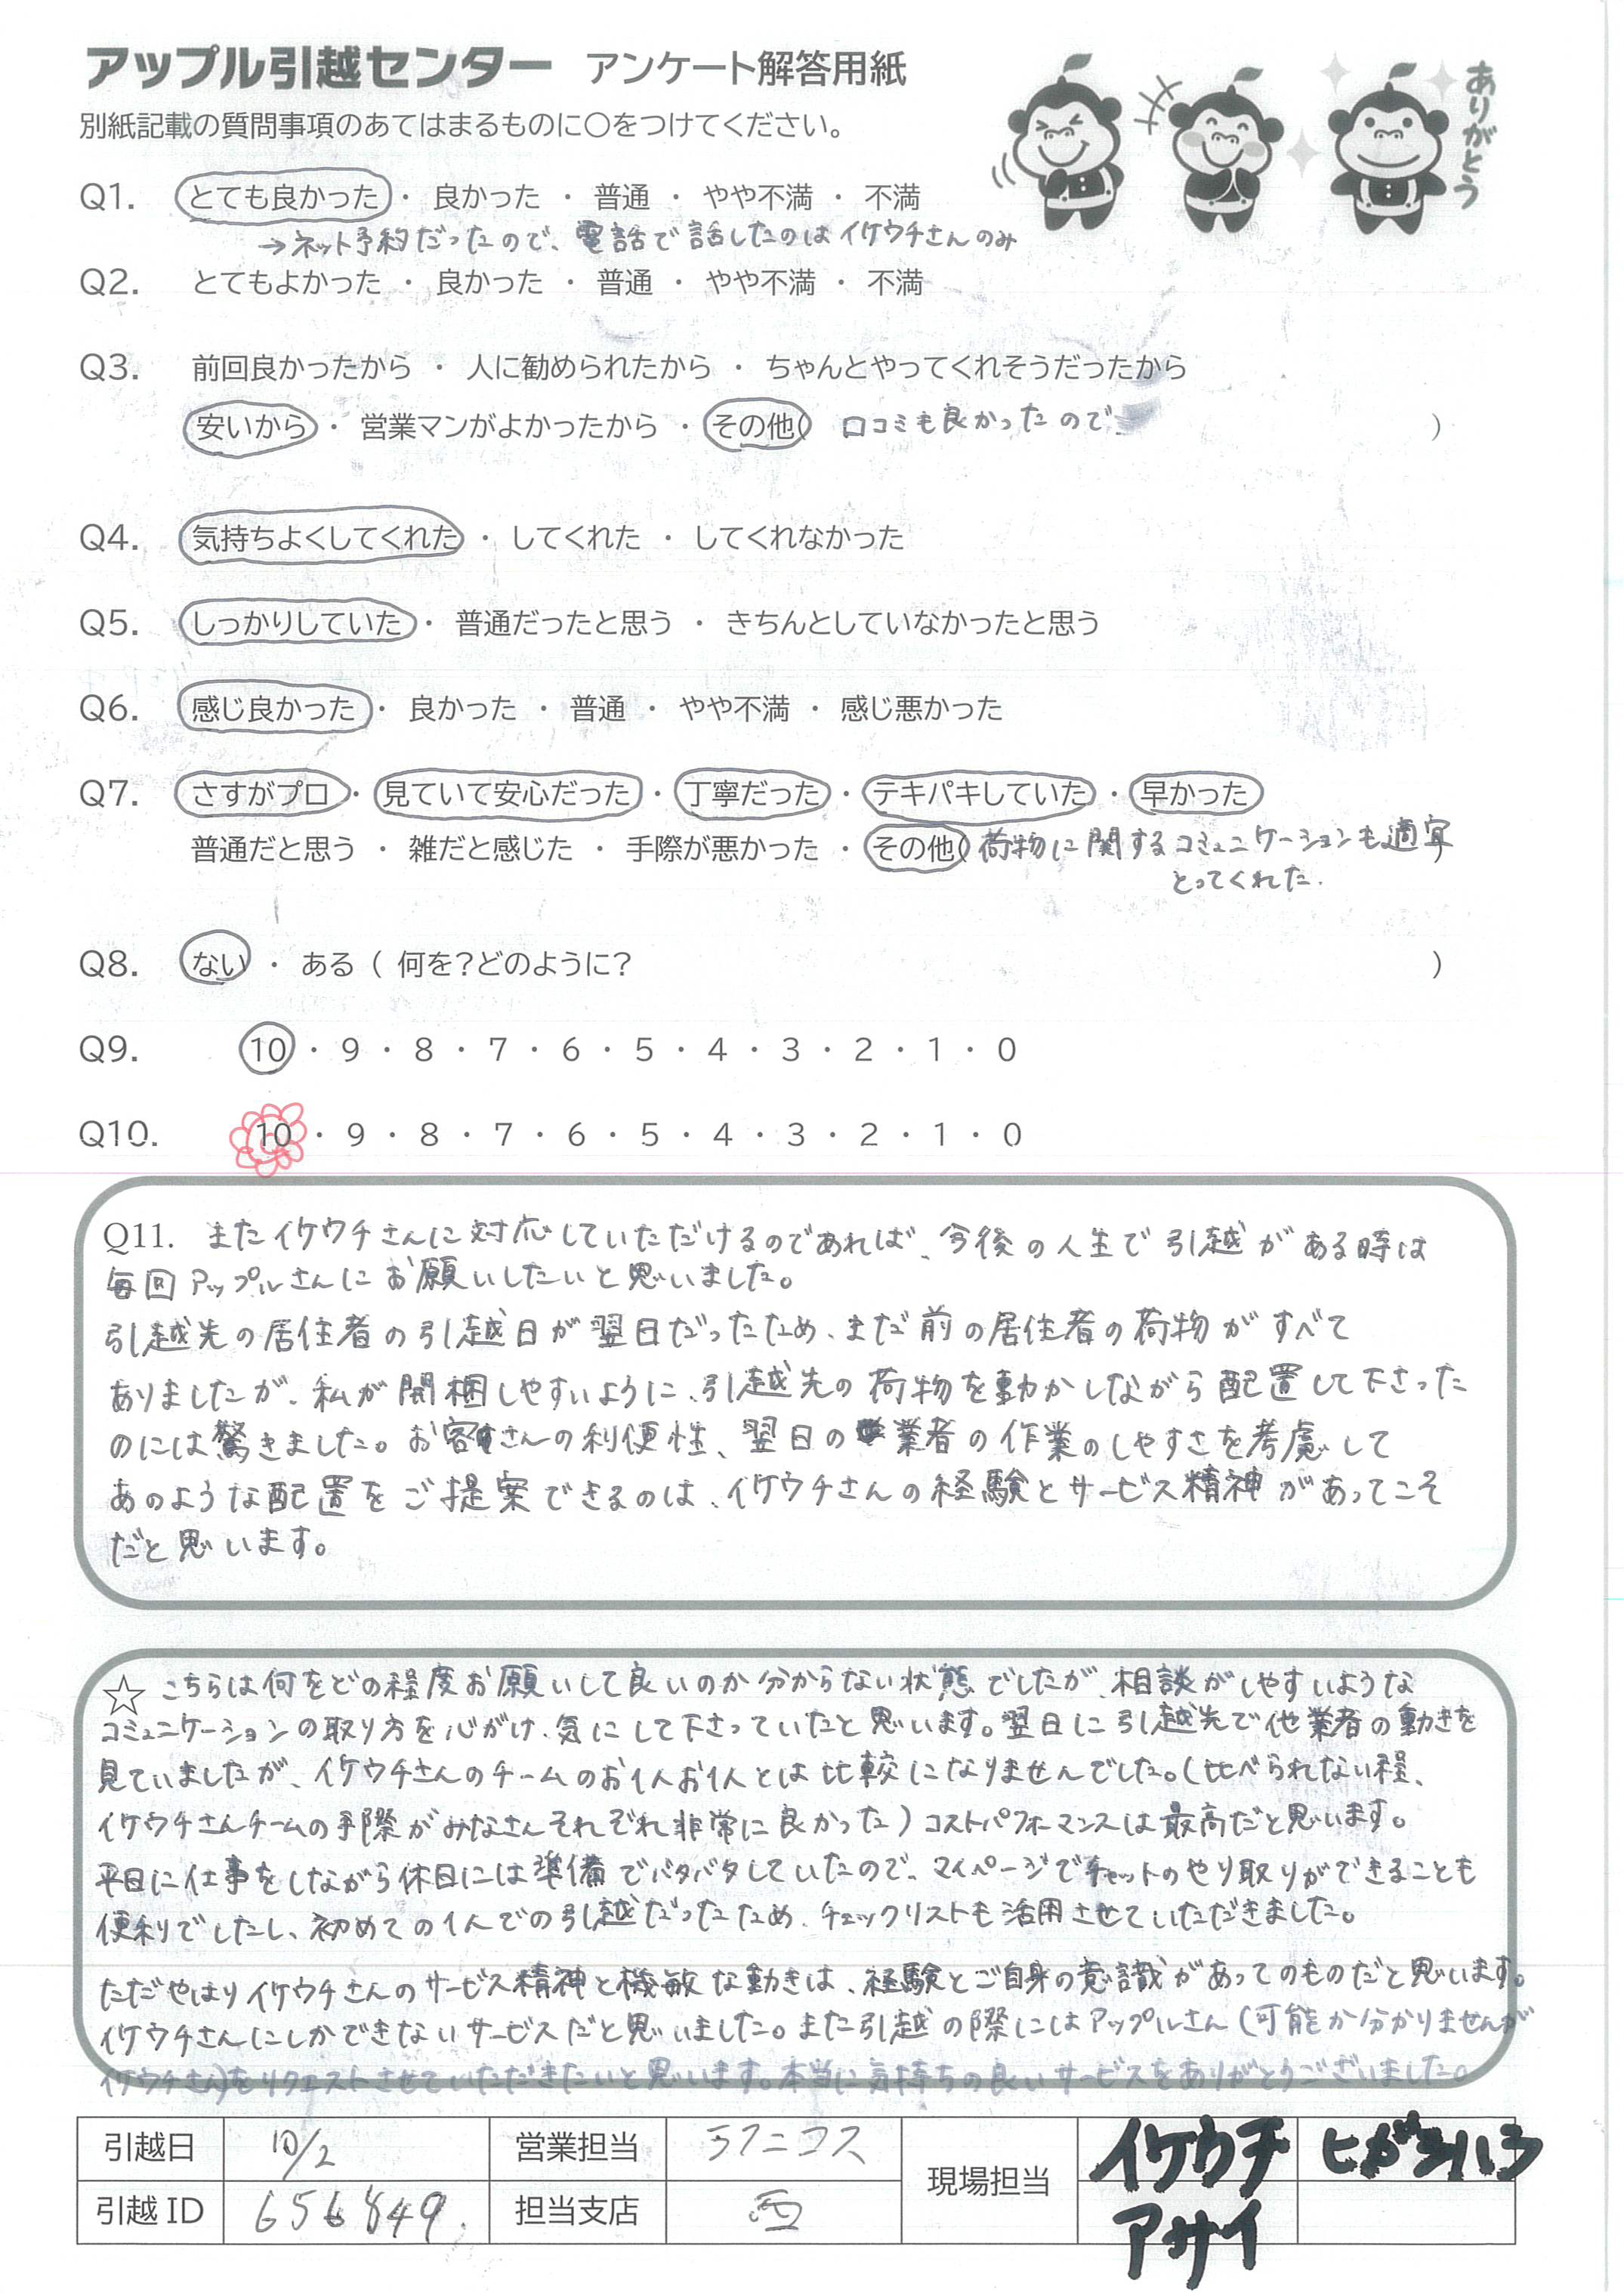 アップル引越センター アンケート解答用紙
ありがとう
別紙記載の質問事項のあてはまるものに○をつけてください。
Q1. とても良かった ・ 良かった ・ 普通 ・ やや不満 ・ 不満
→ネット予約だったので、電話で話したのはイケウチさんのみ
Q2. とてもよかった ・ 良かった ・ 普通 ・ やや不満 ・ 不満
Q3. 前回良かったから ・ 人に勧められたから ・ ちゃんとやってくれそうだったから
安いから ・ 営業マンがよかったから ・ その他( 口コミも良かったので )
Q4. 気持ちよくしてくれた ・ してくれた ・ してくれなかった
Q5. しっかりしていた ・ 普通だったと思う ・ きちんとしていなかったと思う
Q6. 感じ良かった ・ 良かった ・ 普通 ・ やや不満 ・ 感じ悪かった
Q7. さすがプロ ・ 見ていて安心だった ・ 丁寧だった ・ テキパキしていた ・ 早かった
普通だと思う ・ 雑だと感じた ・ 手際が悪かった ・ その他( 荷物に関するコミュニケーションも適宜 )
とってくれた.
Q8. ない ・ ある ( 何を?どのように? )
Q9. 10 ・ 9 ・ 8 ・ 7 ・ 6 ・ 5 ・ 4 ・ 3 ・ 2 ・ 1 ・ 0
Q10. 10 ・ 9 ・ 8 ・ 7 ・ 6 ・ 5 ・ 4 ・ 3 ・ 2 ・ 1 ・ 0
Q11. またイケウチさんに対応していただけるのであれば、今後の人生で引越がある時は
毎回アップルさんにお願いしたいと思いました。
引越先の居住者の引越日が翌日だったため、まだ前の居住者の荷物がすべて
ありましたが、私が開梱しやすいように、引越先の荷物を動かしながら配置して下さった
のには驚きました。お客さんの利便性、翌日の業者の作業のしやすさを考慮して
あのような配置をご提案できるのは、イケウチさんの経験とサービス精神があってこそ
だと思います。
☆ こちらは何をどの程度お願いして良いのか分からない状態でしたが、相談がしやすいような
コミュニケーションの取り方を心がけ、気にして下さっていたと思います。翌日に引越先で他業者の動きを
見ていましたが、イケウチさんのチームのお1人お1人とは比較になりませんでした。(比べられない程、
イケウチさんチームの手際がみなさんそれぞれ非常に良かった)コストパフォーマンスは最高だと思います。
平日に仕事をしながら休日には準備でバタバタしていたので、マイページでチャットのやり取りができることも
便利でしたし、初めての1人での引越だったため、チェックリストも活用させていただきました。
ただやはりイケウチさんのサービス精神と機敏な動きは、経験とご自身の意識があってのものだと思います。
イケウチさんにしかできないサービスだと思いました。また引越の際にはアップルさん(可能か分かりませんが
イケウチさん)をリクエストさせていただきたいと思います。本当に気持ちの良いサービスをありがとうございました。
引越日 10/2 営業担当 ラフニコス 現場担当 イケウチ ヒガシハシ
引越ID 656849 担当支店 西 アサイ